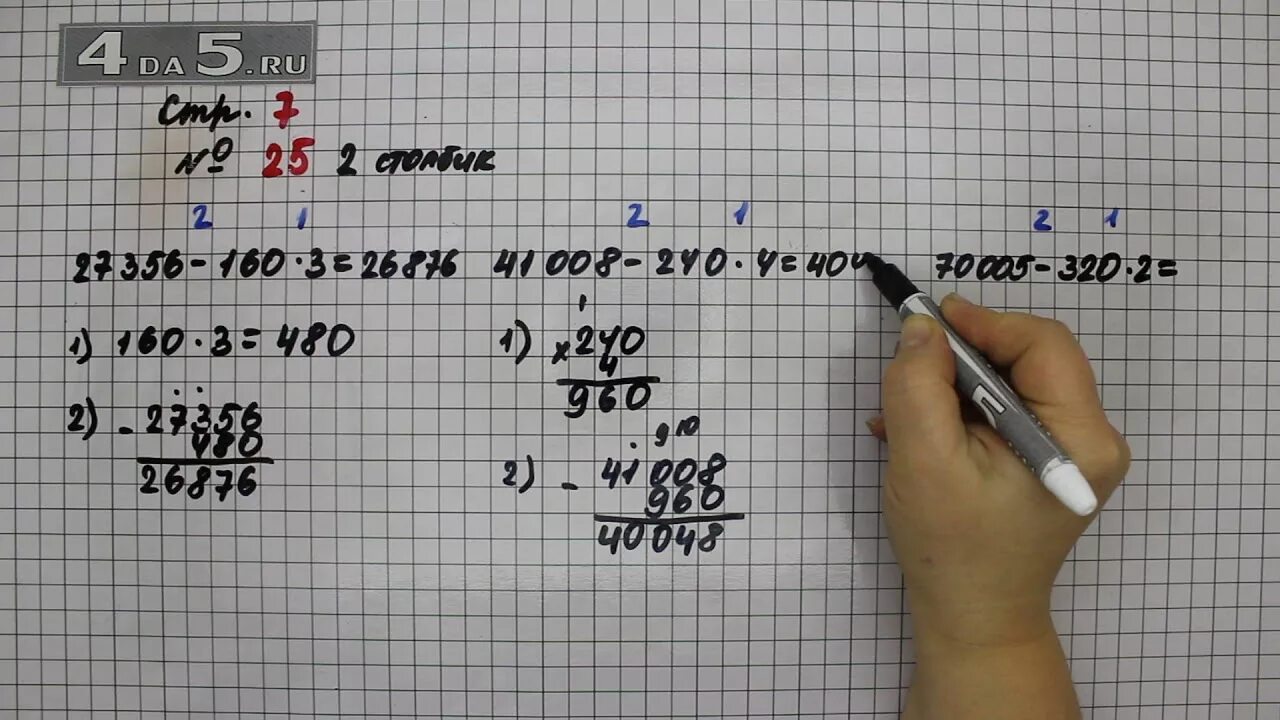 4DA5.RU
Стр. 7
№ 25 2 столбик
2 1
27 356 - 160 · 3 = 26876
1) 160 · 3 = 480
2) - 27356
480
26876
2 1
41 008 - 240 · 4 = 404
1
1) × 240
4
960
. 9 10
2) - 41008
960
40048
2 1
70 005 - 320 · 2 =